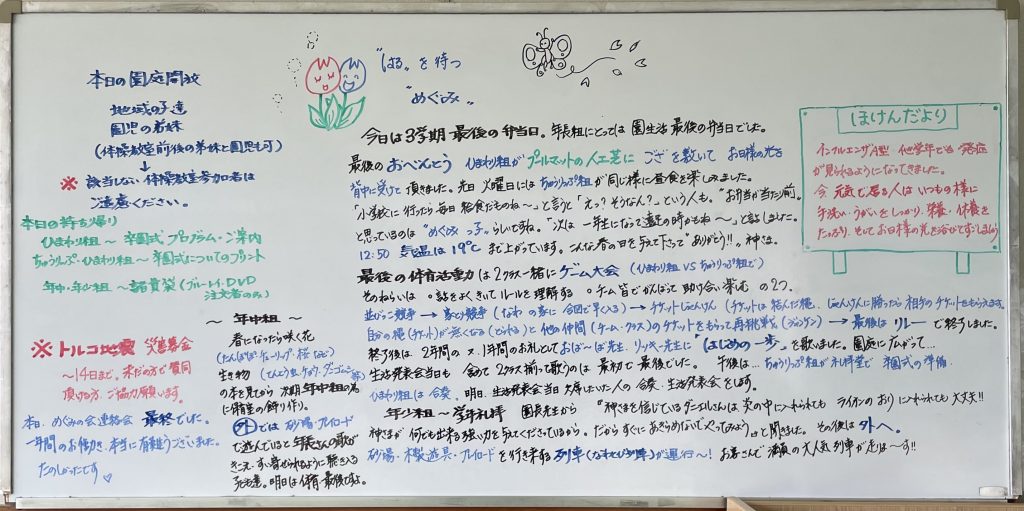 本日の園庭開放
地域の子達
園児の弟妹
(体操教室前後の弟妹と園児も可)
↓
※ 該当しない体操教室参加者は
ご遠慮ください。
本日の持ち帰り
ひまわり組〜卒園式プログラム・ご案内
ちゅうりっぷ・ひまわり組〜卒園式についてのプリント
年中・年少組〜諸費袋(ブルーレイ・DVD
注文者のみ)
※トルコ地震 災害募金
〜14日まで。未だの方で賛同
頂ける方、ご協力願います。
本日、めぐみの会連絡会 最終でした。
一年間のお働き、本当に有難うございました。
たのしかったです♡
〜 年中組 〜
春になったら咲く花
(たんぽぽ・チューリップ・桜など)
生き物
の本を見ながら 次期年中組の為
に精室の飾り作り。
外では 砂場・プレイロード
で遊んでいると 年長さんの歌が
きこえ、すい寄せられるように聴き入る
子も達。明日は体育最後ですよ。
"はる"を待つ
"めぐみ"
今日は3学期 最後の弁当日。年長組にとっては 園生活 最後の弁当日でした。
最後の おべんとう ひまわり組が プールマットの人工芝に ござを敷いて お日様の光を
背中に受けて 頂きました。先日 火曜日には ちゅうりっぷ組が同じ様に昼食を楽しみました。
"小学校に行ったら毎日 給食だものね〜"と言うと"えっ?そうなん?"という人も。"お弁当が当たり前"
と思っているのは"めぐみっ子"らしいですね。"次は 一年生になって遠足の時かもね〜"と話しました。
12:50 気温は19℃まで上がっています。こんな春の日を与えて下さって"ありがとう!!。神さま。
最後の体育活動は2クラス一緒に ゲーム大会 (ひまわり組 VS ちゅうりっぷ組で)
そのねらいは ◦話をよくきいてルールを理解する ◦チーム皆でがんばって 助け合い楽しむ の2つ。
並びっこ競争 → 家とり競争 (なわの家に 今回で早く入る) → チケットじゃんけん (チケットは結んだ縄、じゃんけんに勝ったら相手のチケットをもらえます。
自分の縄(チケット)が無くなる(とられる)と 他の仲間(チーム・クラス)のチケットをもらって再挑戦) → 最後は リレー で終了しました。
終了後は、2年間の又、1年間のお礼として おばーば先生、リッキー先生に"はじめの一歩"を歌いました。園庭に広がって…
生活発表会当日も 含めて 2クラス揃って歌うのは 最初で最後でした。 午後は… ちゅうりっぷ組が礼拝堂で 卒園式の準備。
ひまわり組は 合奏。明日、生活発表会当日 欠席していた人の 合奏、生活発表会をします。
年少組〜学年礼拝 園長先生から "神さまを信じているダニエルさんは 炎の中に入れられても ライオンのおりに入れられても大丈夫!!
神さまが 何でも出来る強い力を与えてくださっているから。だからすぐにあきらめないでやってみよう"と聞きました。その後は外へ。
砂場・木製遊具・プレイロードを行き来する列車(なわとび列車)が運行〜!お客さんで 満員の大人気列車が走りま〜す!!
ほけんだより
インフルエンザA型 他学年でも発症
が見られるようになってきました。
今、元気で居る人は いつもの様に
手洗い・うがいをしっかり、栄養・休養を
たっぷり、そしてお日様の光を浴びて過ごしましょう